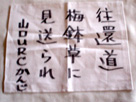 往還道
梅鉢草に
見送られ
山口URCかんじ